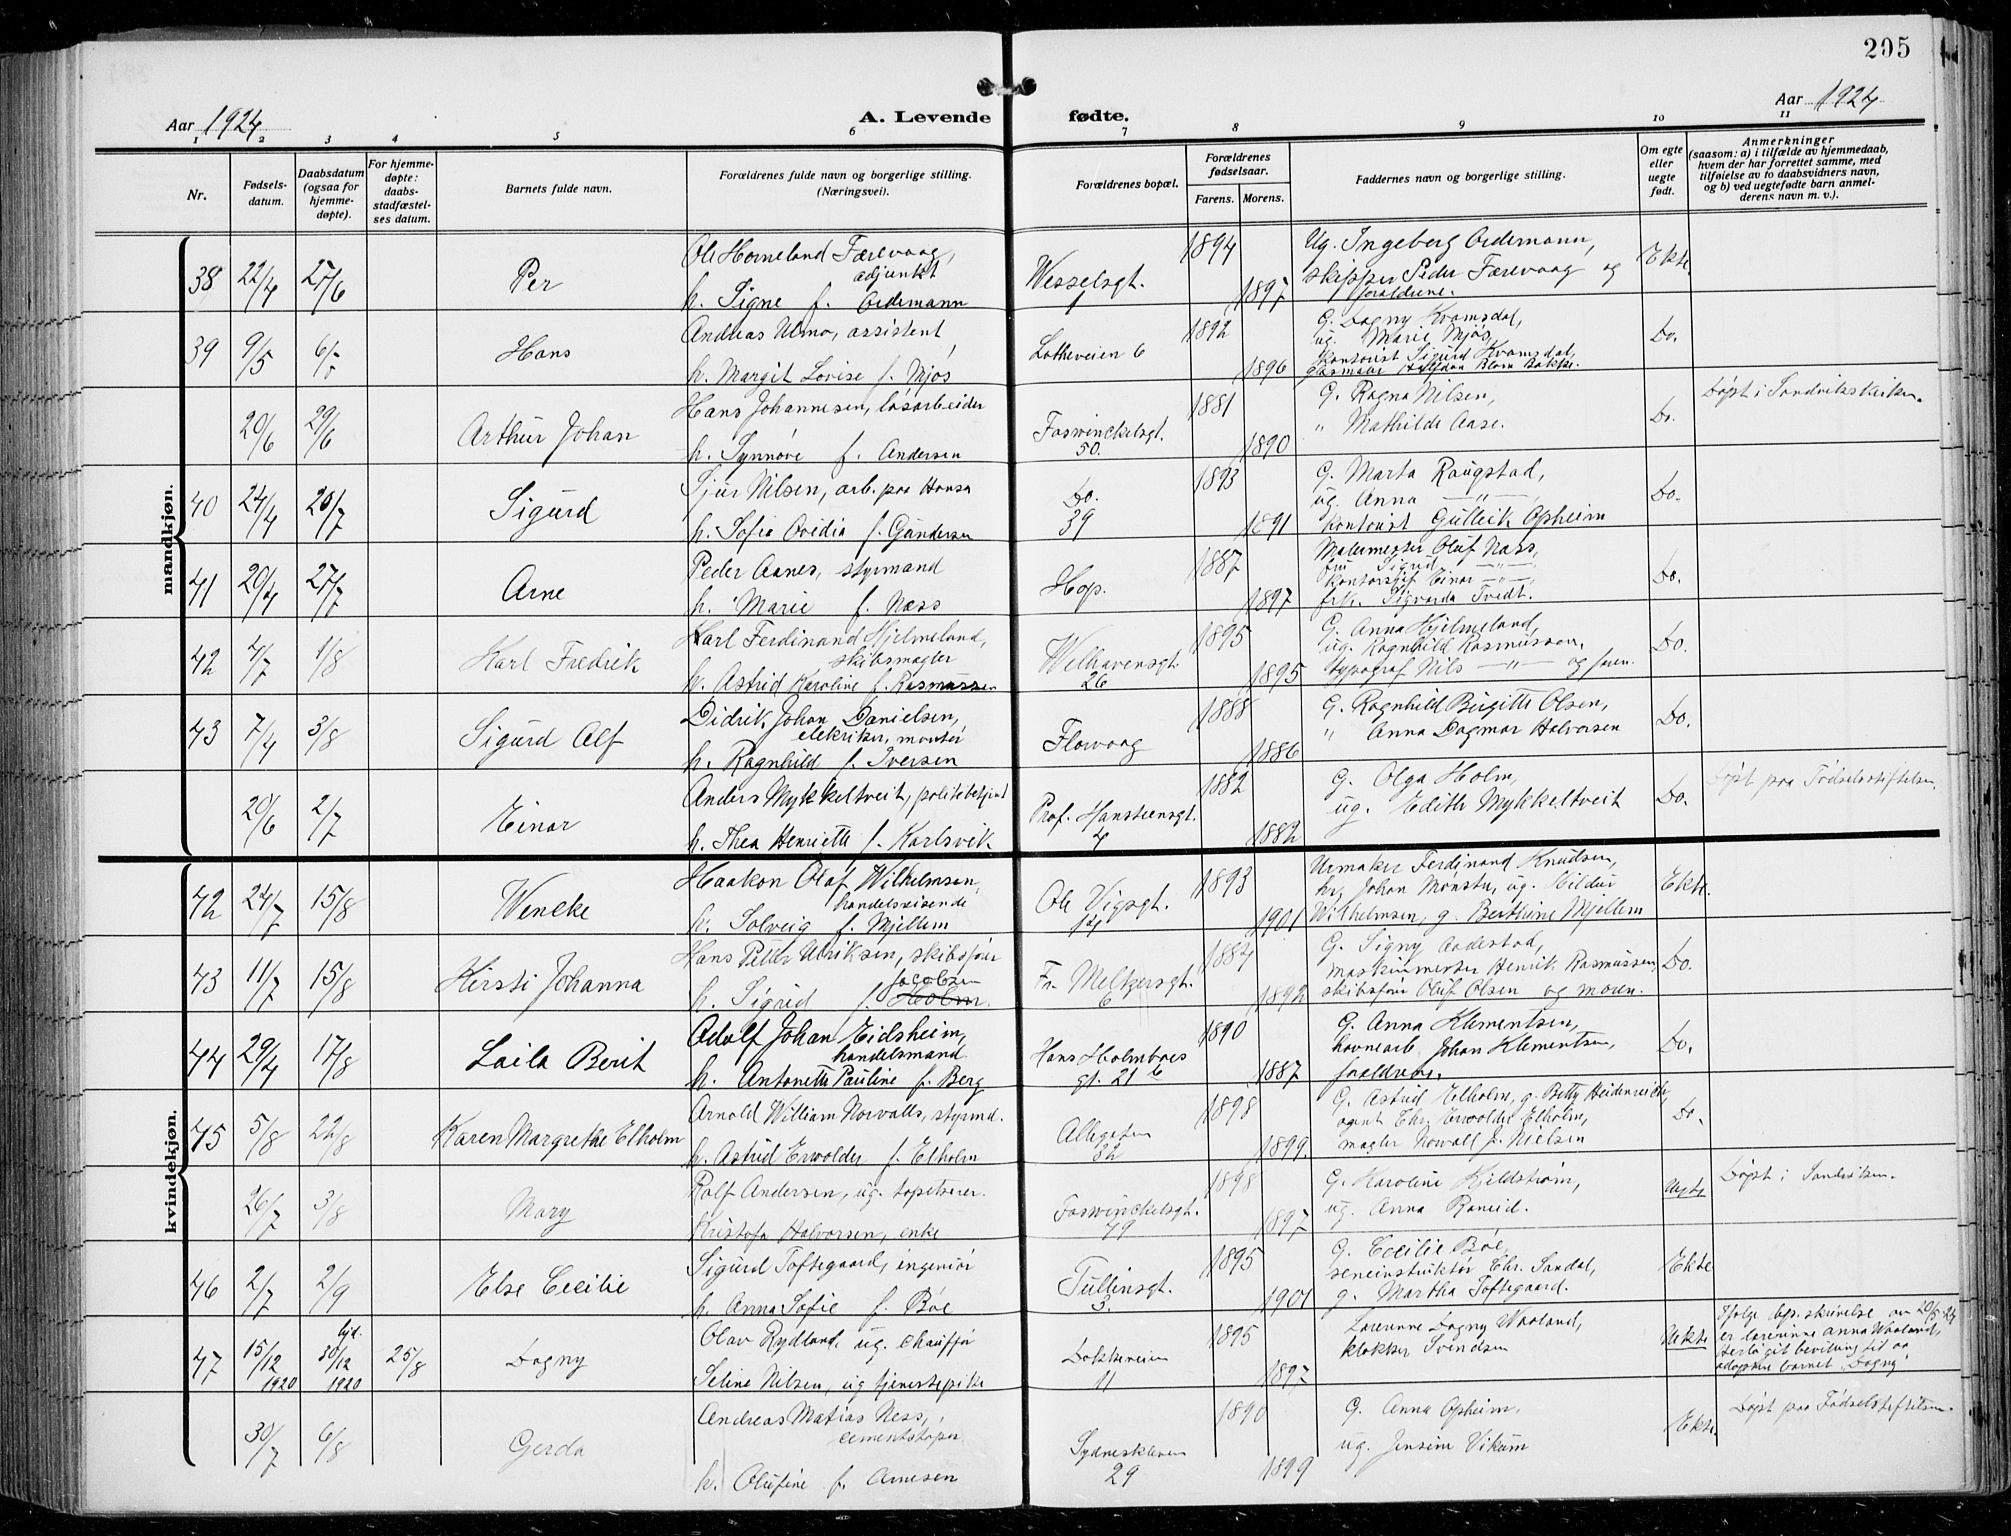 205
Aar 1924
A. Levende fødte.
Aar 1924
1 2 3 4 5 6 7 8 9 10 11
Nr.
Fødsels-
datum.
Daabsdatum
(ogsaa for
hjemme-
døpte).
For hjemme-
døpte:
daabs-
stadfæstel-
ses datum.
Barnets fulde navn.
Forældrenes fulde navn og borgerlige stilling.
(Næringsvei).
Forældrenes bopæl.
Forældrenes
fødselsaar.
Farens. Morens.
Faddernes navn og borgerlige stilling.
Om egte
eller
uegte
født.
Anmerkninger
(saasom: a) i tilfælde av hjemmedaab,
hvem der har forrettet samme, med
tilføielse av to daabsvidners navn,
og b) ved uegtefødte barn anmel-
derens navn m. v.).
mandkjøn.
38 22/4 27/6 Per
Ole Horneland Færevaag,
adjunkt
h. Signe f. Oedemann
Wesselsgt.
1
1894 1897
Ug. Ingeberg Oedemann,
skipper Peder Færevaag og
foraldrene.
Ekte.
39 9/5 Hans
Andreas Ulmo, assistent,
h. Margit Lovise f. Mjøs
Lotheveien 6
1892 1896
G. Dagny Kvamsdal,
ug. Marie Mjøs,
kontorist Sigurd Kvamsdal,
Halfdan Blom Bakke.
Do.
20/6 29/6 Arthur Johan
Hans Johannesen, løsarbeider
h. Synnøve f. Andersen
Foswinckelsgt.
50.
1881 1890
G. Ragna Nilsen,
" Mathilde Aase.
Do.
Døpt i Sandvikskirken.
40 24/4 20/7 Sigurd
Sjur Nilsen, arb. paa Hansa
h. Sofie Ovidia f. Gundersen
Do.
39
1893 1891
G. Marta Raugstad,
ug. Anna —"—,
kontorist Gulleik Opheim
Do.
41 20/4 27/7 Arne
Peder Aanes, styrmand
h. Marie f. Næss
Hop.
1887 1897
Malermester Oluf Næss,
fru Sigrid —"—
Einar —"—,
frk. Sigvarda Tvedt.
Do.
42 4/7 1/8 Karl Fredrik
Karl Ferdinand Hjelmeland,
skibsmægler
h. Astrid Karoline f. Rasmussen
Welhavensgt.
26
1895 1895
G. Anna Hjelmeland,
ug. Ragnhild Rasmussen,
typograf Nils —"— og faren.
Do.
43 7/4 3/8 Sigurd Alf
Didrik Johan Danielsen,
elektriker, montør
h. Ragnhild f. Iversen
Florvaag
1888 1886
G. Ragnhild Birgitte Olsen,
" Anna Dagmar Halvorsen
Do.
20/6 2/7 Einar
Anders Mykkeltveit, politibetjent
h. Thea Henriette f. Karlsvik
Prof. Hansteensgt.
4
1882 1882
G. Olga Holm,
ug. Edith Mykkeltveit
Do.
Døpt paa Fødselsstiftelsen.
kvindekjøn.
42 24/7 15/8 Wencke
Haakon Olaf Wilhelmsen,
handelsreisende
h. Solveig f. Mjellem
Ole Vigsgt.
14
1893 1901
Urmaker Ferdinand Knudsen,
hr. Johan Monster, ug. Hildur
Wilhelmsen, g. Berthine Mjellem
Ekte.
43 11/7 15/8 Kirsti Johanna
Hans Petter Ulriksen, skibsfører
Jacobsen
h. Sigrid f. Holm.
Fr. Meltzersgt.
6
1884 1892
G. Signy Aadestad,
maskinmester Henrik Rasmussen,
skibsfører Oluf Olsen og moren.
Do.
44 29/4 17/8 Laila Berit
Adolf Johan Eidsheim,
handelsmand.
h. Antonette Pauline f. Berg
Hans Holmboes
gt. 21 b
1890 1887
G. Anna Klementsen,
havnearb. Johan Klementsen,
foraldrene.
Do.
45 5/8 22/8 Karen Margrethe Elholm
Arnold William Norvalls, styrmd.
h. Astrid Erwolder f. Elholm
Allegaten
32
1898 1899.
G. Astrid Elholm, g. Betty Heidenreich,
agent Chr. Erwolder Elholm,
mægler Nowall J. Nielsen
Do.
26/7 3/8 Mary
Rolf Andersen, ug. tapetserer.
Kristofa Halvorsen, enke
Foswinckelsgt.
49
1898 1897
G. Karoline Kjeldstrøm,
ug. Anna Raneid.
Uegte
Døpt i Sandviken.
46 2/7 2/9 Else Cecilie
Sigurd Toftegaard, ingeniør
h. Anna Sofie f. Bøe
Tullinsgt.
3.
1895 1901
G. Cecilie Bøe,
seneinstruktør Chr. Sandal,
g. Martha Toftegaard.
Ekte
47 15/12 1920 hjd. 30/12 1920 25/8 Dagny
Olav Rydland, ug. chauffør
Seline Nilsen, ug tjenestepike
Dokkeveien
11
1895 1897
Lærerinne Dagny Waaland,
klokker Svendsen
Uekte
Ifølge bps. skrivelse av 20/8 24
er lærerinne Anna Waaland,
git bevilling til at
adoptere barnet "Dagny".
30/7 6/8 Gerda
Andreas Matias Ness,
cementstøper
h. Olufine f. Arnesen
Sydneskleven
29
1890 1899
G. Anna Opheim,
ug. Jensine Vikum
Ekte.
Døpt paa Fødselsstiftelsen.